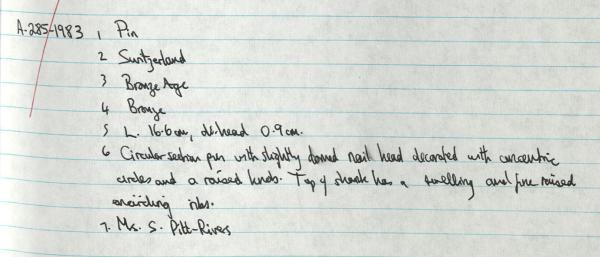 A.285-1983 1 Pin
2 Switzerland
3 Bronze Age
4 Bronze
5 L. 16.6cm, di. head 0.9cm.
6 Circular section pin with slightly domed nail head decorated with concentric
circles and a raised knob. Top of shank has a swelling and fine raised
encircling ribs.
7. Ms. S. Pitt-Rivers